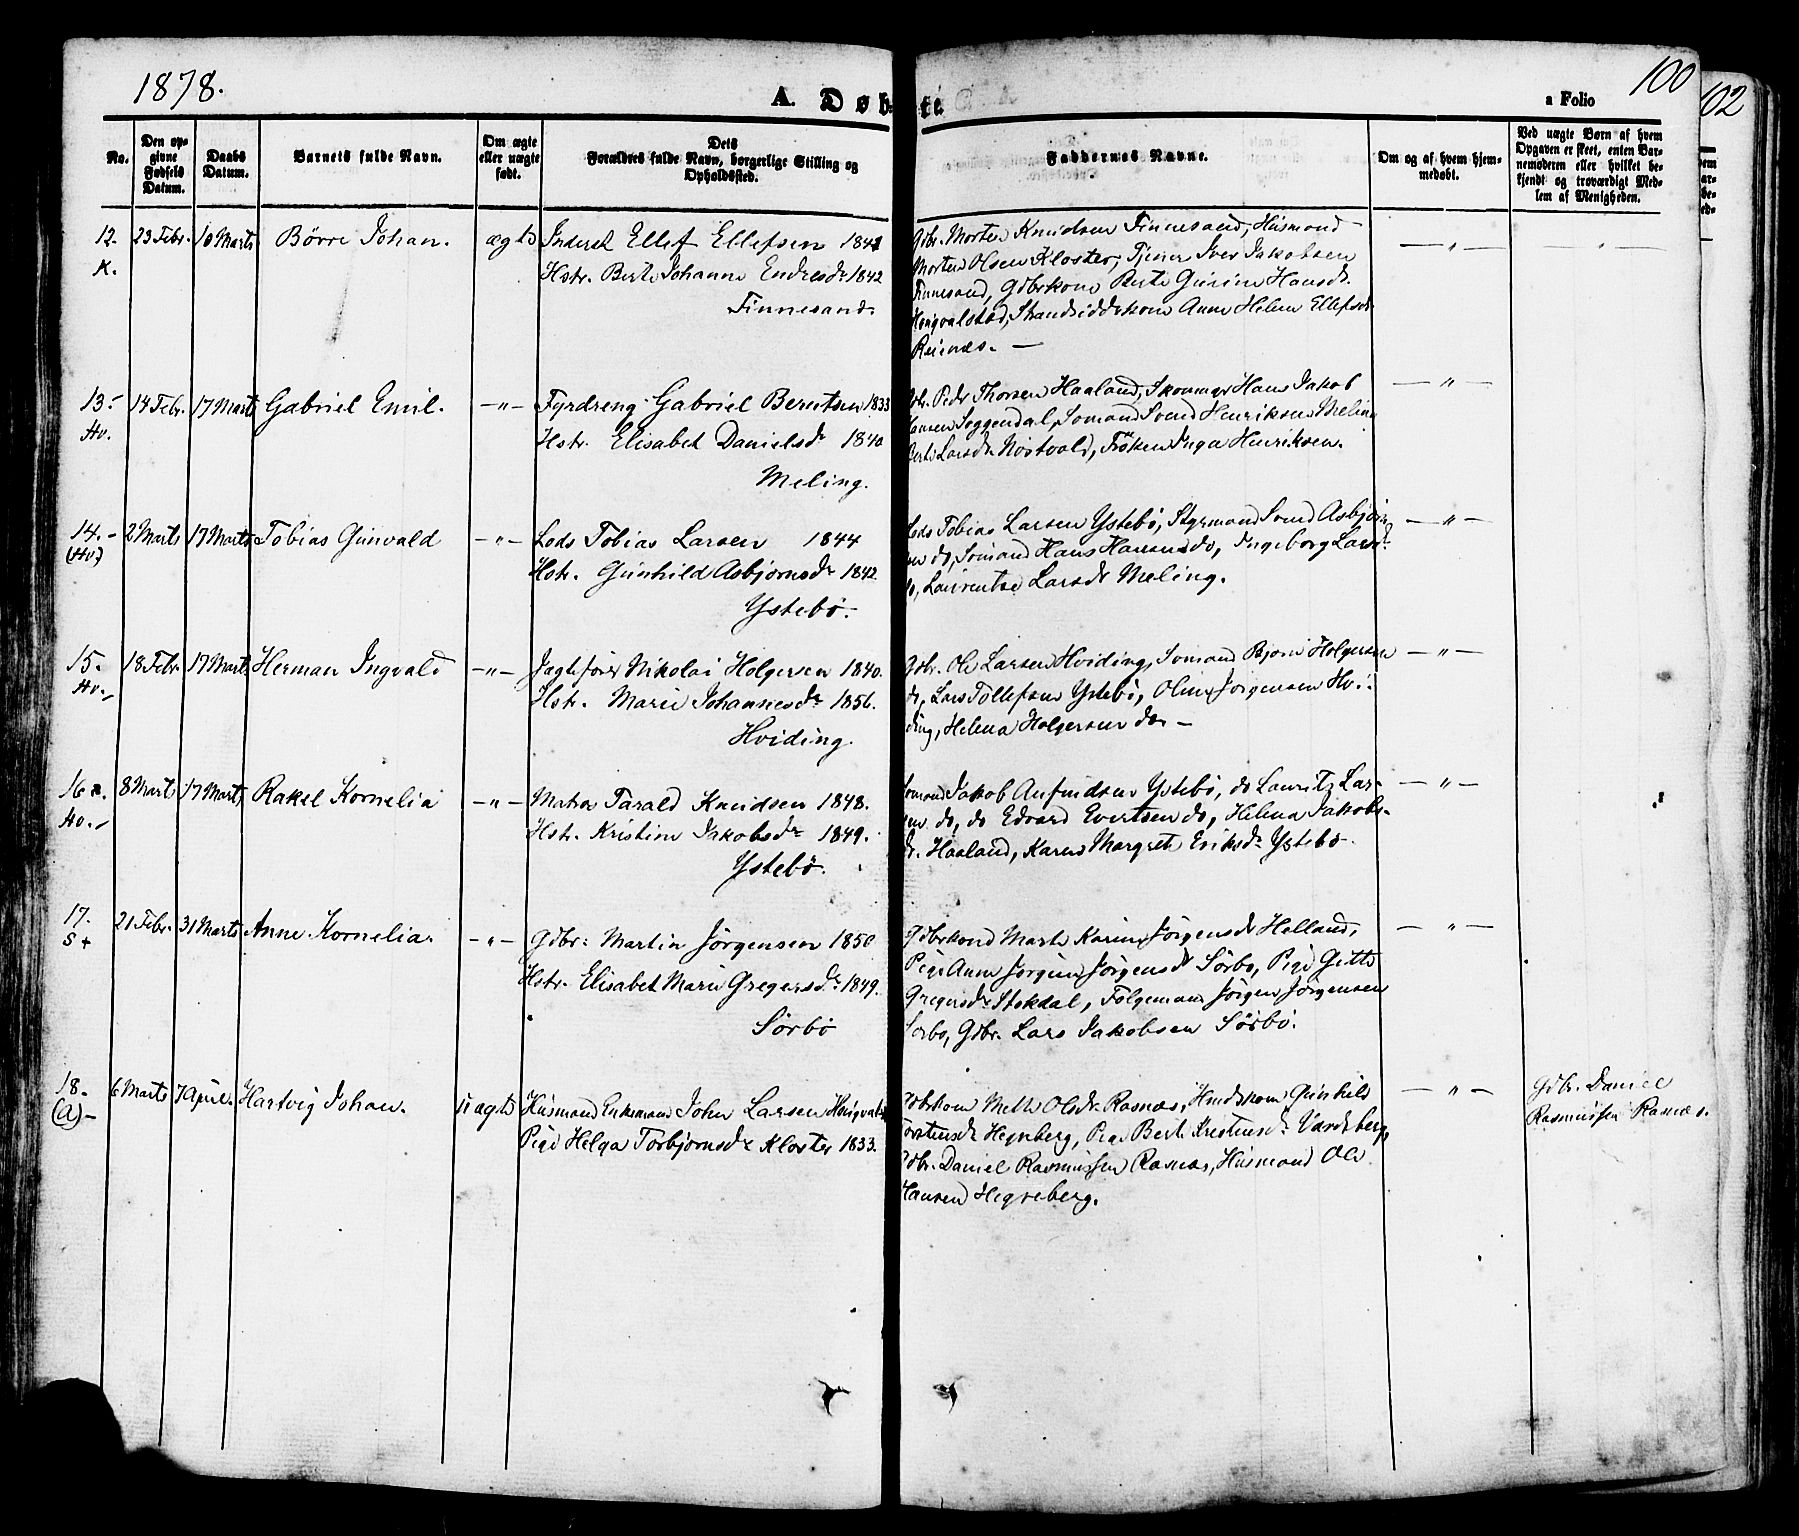 1878.
A. Døbte.
a Folio
100
102
No.
Den opgivne Fødsels Datum.
Daabs Datum.
Barnets fulde Navn.
Om ægte eller uægte født.
Dets Forældres fulde Navn, borgerlige Stilling og Opholdssted.
Faddernes Navne.
Om og af hvem hjemmedøbt.
Ved uægte Børn af hvem Opgaven er skeet, enten Barnemoderen eller hvilket bekjendt og troværdigt Medlem af Menigheden.
12. 23 Febr. 10 Marts Børre Johan. ægte Inderst Ellef Ellefsen
K. Hstr. Berte Johanne Endresdr 1842
Finnesand.
Gdbr. Morten Knudsen Finnesand, Husmand
Morten Olsen Kloster, Tjener Iver Jakobsen
Finnesand, Gdbrkone Berte Gurine Hansdr.
Strandsidderkone Anne Helene Ellefsdr
Reienæs. —
— " —
"
13. 14 Febr. 17 Marts Gabriel Emil. — " — Fyrdreng Gabriel Berntsen 1833
Hv. Hstr. Elisabet Danielsdr 1840
Meling.
Gdbr. Peder Thorsen Haaland, Skommager Hans Jakob
Hansen Soggendal, Sømand Svend Henriksen Meling
Berte Larsdr Nøstvold, Frøken Inga Henriksen.
— " —
14. 2 Marts 17 Marts Tobias Gunvald — " — Lods Tobias Larsen 1844
(Hv.) Hstr. Gunhild Asbjørnsdr 1842
Ystebø.
Lods Tobias Larsen Ystebø, Styrmand Svend Asbjørn-
sen do, Sømand Hans Hansen do, Ingeborg Larsdr
do, Laurentse Larsdr Meling.
— " —
15. 18 Febr. 17 Marts Herman Ingvald — " — Jagtefører Nikolai Holgersen 1840.
Hv. Hstr. Marie Johannesdr 1856.
Hviding.
Gdbr. Ole Larsen Hviding, Sømand Bjørn Holgersen
do, Lars Tollefsen Ystebø, Oline Jørgensen Hvi-
ding, Helena Holgersen do. —
— " —
16. 8 Marts 17 Marts Rakel Kornelia — " — Matros Tarald Knudsen 1848.
Hv. Hstr. Kristine Jakobsdr 1849.
Ystebø.
Sømand Jakob Anfindsen Ystebø, do Lauritz Lar-
sen do, do Edvard Evertsen do, Helena Jakobs-
dr. Haaland, Karen Margrete Eriksdr Ystebø.
— " —
17. 21 Febr. 31 Marts Anne Kornelia. — " — Gdbr. Martin Jørgensen 1850
S + Hstr. Elisabet Marie Gregersdr 1849.
Sørbø
Gdbrkone Marte Karine Jørgensdr Helland,
Pige Anne Jørgine Jørgensdr Sørbø, Pige Gitte
Gregersdr Stokdal, Følgemand Jørgen Jørgensen
Sørbø, Gdbr. Lars Jakobsen Sørbø.
— " —
18. 6 Marts 7 April. Hartvig Johan. uægte Husmand Enkemand John Larsen
(A) — Pige Helga Torbjørnsdr Kloster 1833.
Gdbrkone Mette Olsdr. Rasnæs, Husmdskone Gunhild
Torstensdr Hegreberg, Pige Berte Kristensdr. Vardeberg,
Gdbr. Daniel Rasmussen Rasnæs, Husmand Ole
Hansen Hegreberg.
— " —
Gdbr. Daniel
Rasmussen Rasnæs.